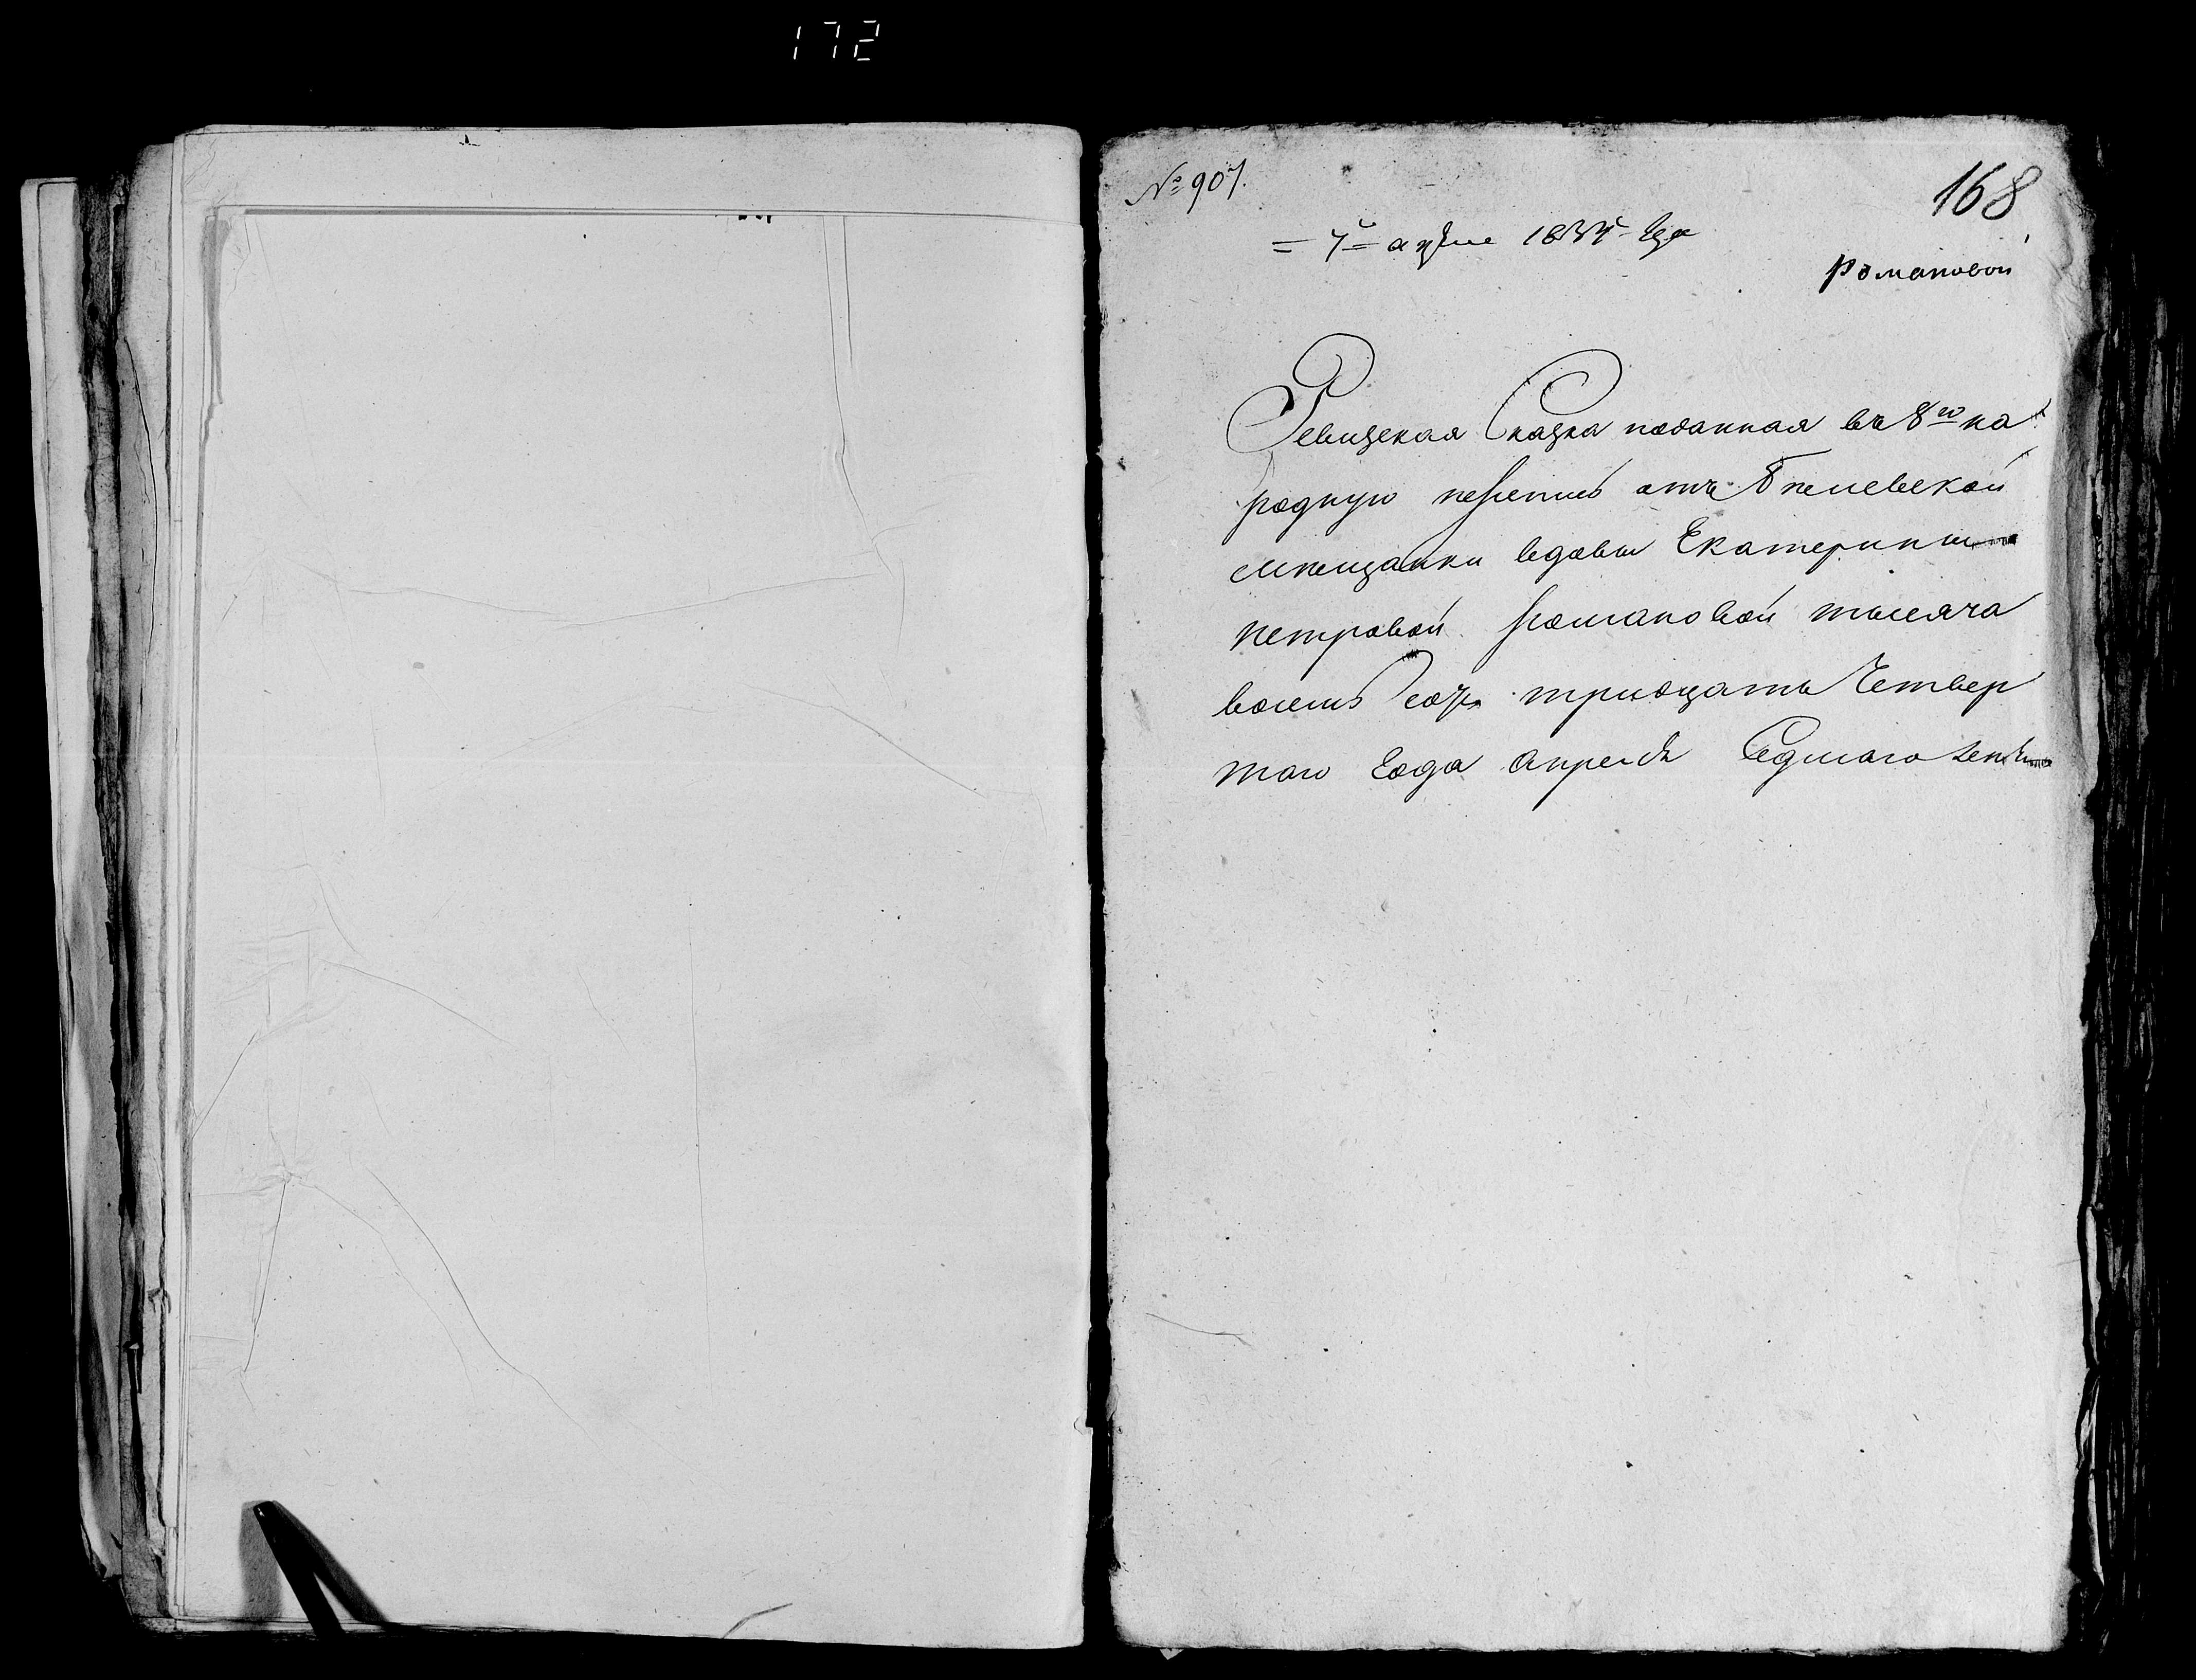 172
№ 907.
168
= 7го апреле 1834 года
Романовой
Ревизская Сказка поданная въ 8ю на
родную перепись отъ Белевской
мещанки вдовы Екатерины
петровой Романовой тысяча
восемь сотъ тридцать Четвер
таго Года Апреля Седмаго дня